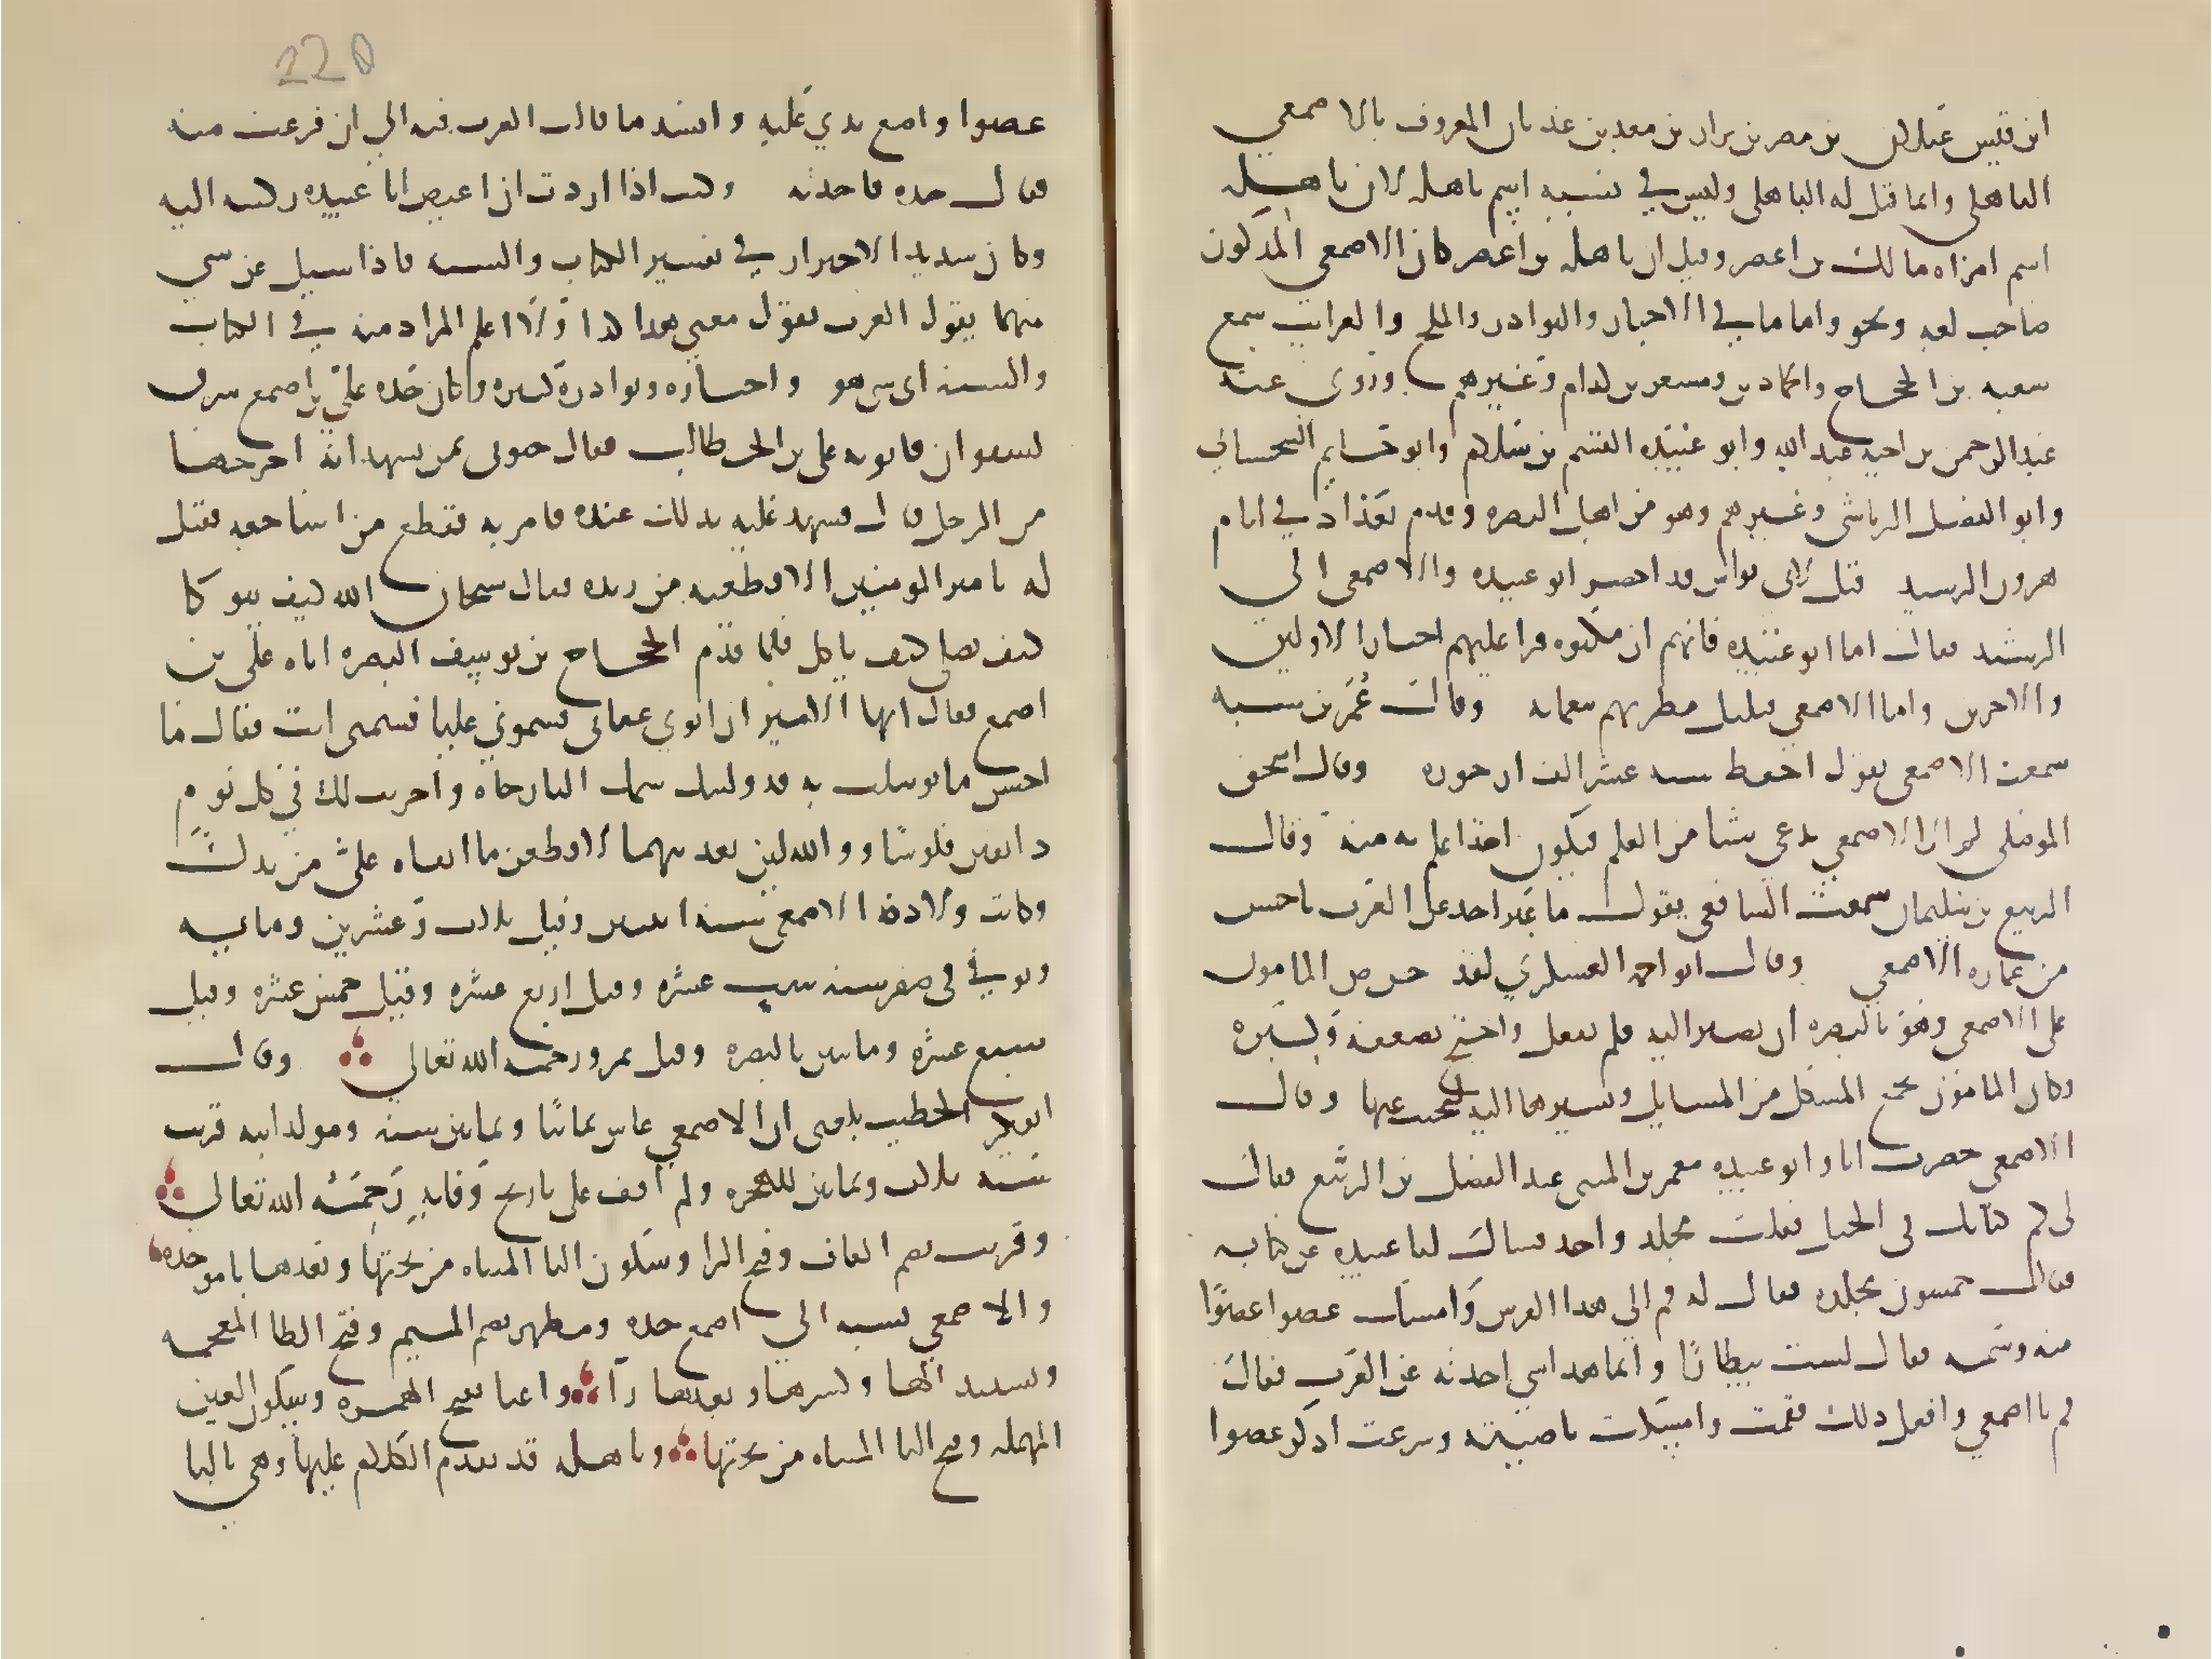 ابن قيس عيلان بن مضر بن نزار بن معد بن عدنان المعروف بالاصمعي
الباهلي وانما قيل له الباهلي وليس في نسبه اسم باهله لان باهله
اسم امراه مالك بن اعصر وقيل ان باهله بن اعصر كان الاصمعي المذكور
صاحب لغه ونحو واماما في الاخبار والنوادر والملح والغرايب سمع
شعبه بن الحجاج والحمادين ومسعر بن كدام وغيرهم وروى عنه
عبد الرحمن بن اخيه عبد الله وابو عبيده القسم بن سلام وابو حاتم السجستاني
وابو الفضل الرياشي وغيرهم وهو من اهل البصره وقدم بغداد في ايام
هرون الرشيد قيل لابي نواس قد احضر ابو عبيده والاصمعي الى
الرشيد فقال اما ابو عبيده فانهم ان مكنوه قرا عليهم اخبار الاولين
والاخرين واما الاصمعي فبلبل يطربهم بنغماته وقال عمر بن شبه
سمعت الاصمعي يقول احفظ سته عشر الف ارجوزه وقال اسحق
الموصلي لم ار الاصمعي يدعي شيا من العلم فيكون احدا اعلم به منه وقال
الربيع بن سليمان سمعت الشافعي يقول ما عبر احد عن العرب باحسن
من عباره الاصمعي وقال ابو احمد العسكري لقد حرص المامون
على الاصمعي وهو بالبصره ان يصير اليه فلم يفعل واحتج بضعفه وكبره
وكان المامون يجمع المشكل من المسايل ويسيرها اليه ليجيب عنها وقال
الاصمعي حضرت انا وابو عبيده معمر بن المثنى عند الفضل بن الربيع فقال
لي كم كتابك في الخيل فقلت مجلد واحد فسال ابا عبيده عن كتابه
فقال خمسون مجلده فقال له قم الى هذا الفرس وامسك عضوا عضوا
منه وسمه فقال لست بيطارا وانما هذا شي اخذته عن العرب فقال
قم يا اصمعي وافعل ذلك فقمت وامسكت ناصيته وشرعت اذكر عضوا
220
عضوا واضع يدي عليه وانشد ما قالت العرب فيه الى ان فرغت منه
فقال خذه فاخذته وكنت اذا اردت ان اغيظ ابا عبيده ركبته اليه
وكان شديد الاحتراز في تفسير الكتاب والسنه فاذا سيل عن شي
منهما يقول العرب تقول معنى هذا كذا ولا اعلم المراد منه في الكتاب
والسنه اي شي هو واخباره ونوادره كثيره وكان جده علي بن اصمع سرق
بسفوان فاتوا به علي بن ابي طالب فقال جيوني بمن يشهد انه اخرجها
من الرحل قال فشهد عليه بذلك عنده فامر به فقطع من اشاجعه فقيل
له يا امير المومنين الا قطعته من زنده فقال سبحان الله كيف يتوكا
كيف يصلي كيف ياكل فلما قدم الحجاج بن يوسف البصره اتاه علي بن
اصمع فقال ايها الامير ان ابوي عقاني فسموني عليا فسمني انت فقال ما
احسن ما توسلت به قد وليتك سمك البارجاه واجريت لك في كل يوم
دانقين فلوسا ووالله لين تعديتهما لاقطعن ما ابقاه علي من يدك
وكانت ولاده الاصمعي سنه اثنين وقيل ثلاث وعشرين ومايه
وتوفي في صفر سنه ست عشره وقيل اربع عشره وقيل خمس عشره وقيل
سبع عشره ومايتين بالبصره وقيل بمرو رحمه الله تعالى وقال
ابو بكر الخطيب بلغني ان الاصمعي عاش ثمانيا وثمانين سنه ومولد ابيه قريب
سنه ثلاث وثمانين للهجره ولم اقف على تاريخ وفاته رحمه الله تعالى
وقريب بضم القاف وفتح الرا وسكون اليا المثناه من تحتها وبعدها با موحده
والاصمعي نسبه الى اصمع جده ومظهر بضم الميم وفتح الظا المعجمه
وتشديد الها وكسرها وبعدها را واعيا بفتح الهمزه وسكون العين
المهمله وفتح اليا المثناه من تحتها وباهله قد تقدم الكلام عليها وهي بالبا